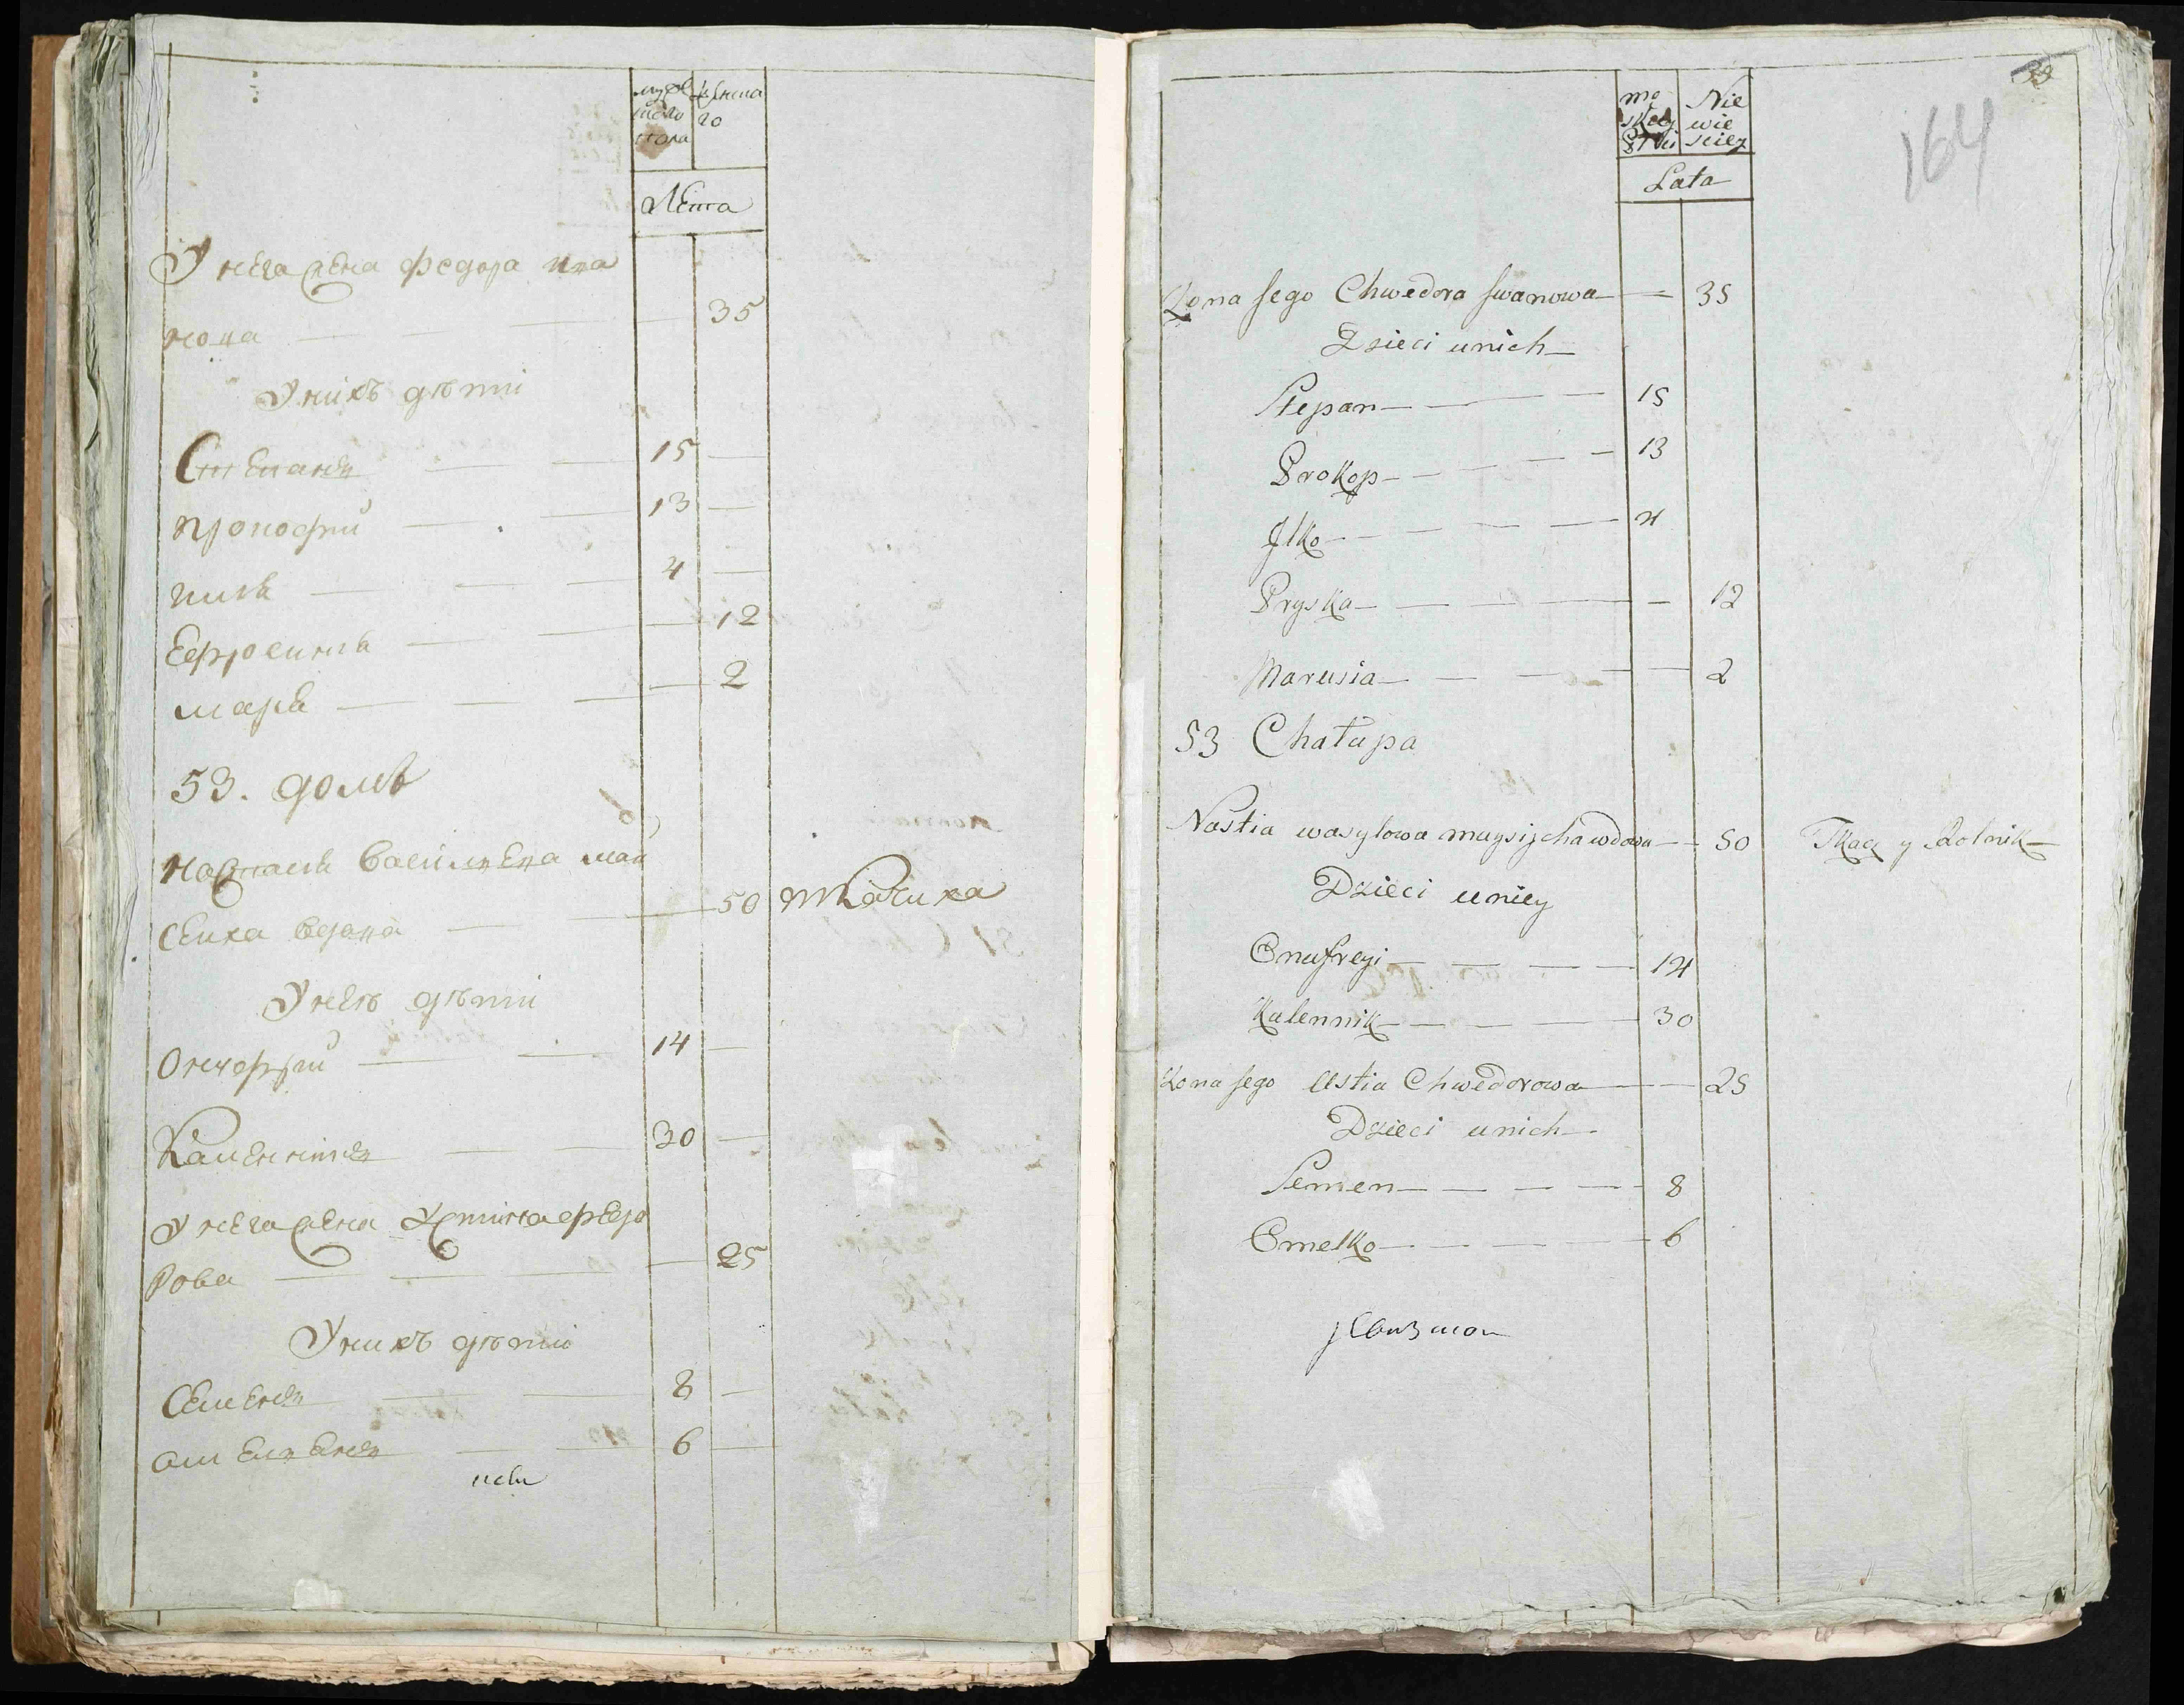 мужеска пола
женска го
Лѣта
У него жена Федора Ива
нова 35
У нихъ дѣти
Степанъ 15
Прокофий 13
Илья 4
Ефросинья 12
Марья 2
53. домъ
Настасья Васильева Мой
сеиха вдова 50 Ткачиха
У нея дѣти
Онуфрий 14
Каленникъ 30
У него жена Устинья Федо
рова 25
У нихъ дѣти
Семенъ 8
Омельянъ 6
39
164
męskey Płci
Niewiesciey
Lata
Zona Jego Chwedora Iwanowa 35
Dzieci u nich
Stepan 15
Prokop 13
Ilko 4
Pryska 12
Marusia 2
53 Chałupa
Nastia wasylowa muysijcha wdowa 50 Tkacz y Rolnik
Dzieci u niey
Onufreyi 14
Kalennik 30
Zona Jego Ustia Chwedorowa 25
Dzieci u nich
Semen 8
Omelko 6